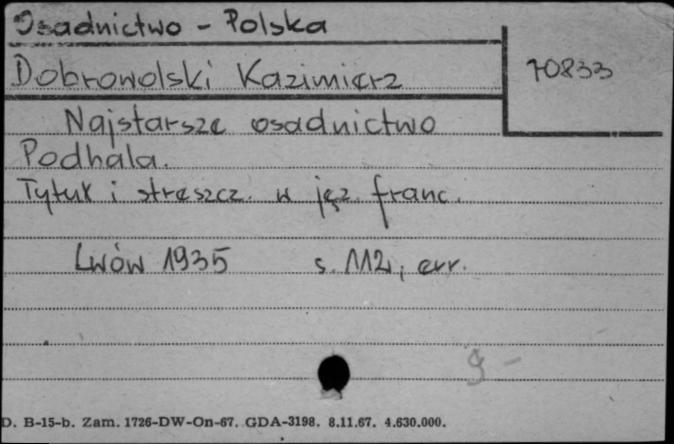 Osadnictwo - Polska
70833
Dobrowolski Kazimierz
Najstarsze osadnictwo
Podhala.
Tytuł i streszcz. w jęz. franc.
Lwów 1935 s. 112, err.
g -
D. B-15-b. Zam. 1726-DW-On-67. GDA-3198. 8.11.67. 4.630.000.